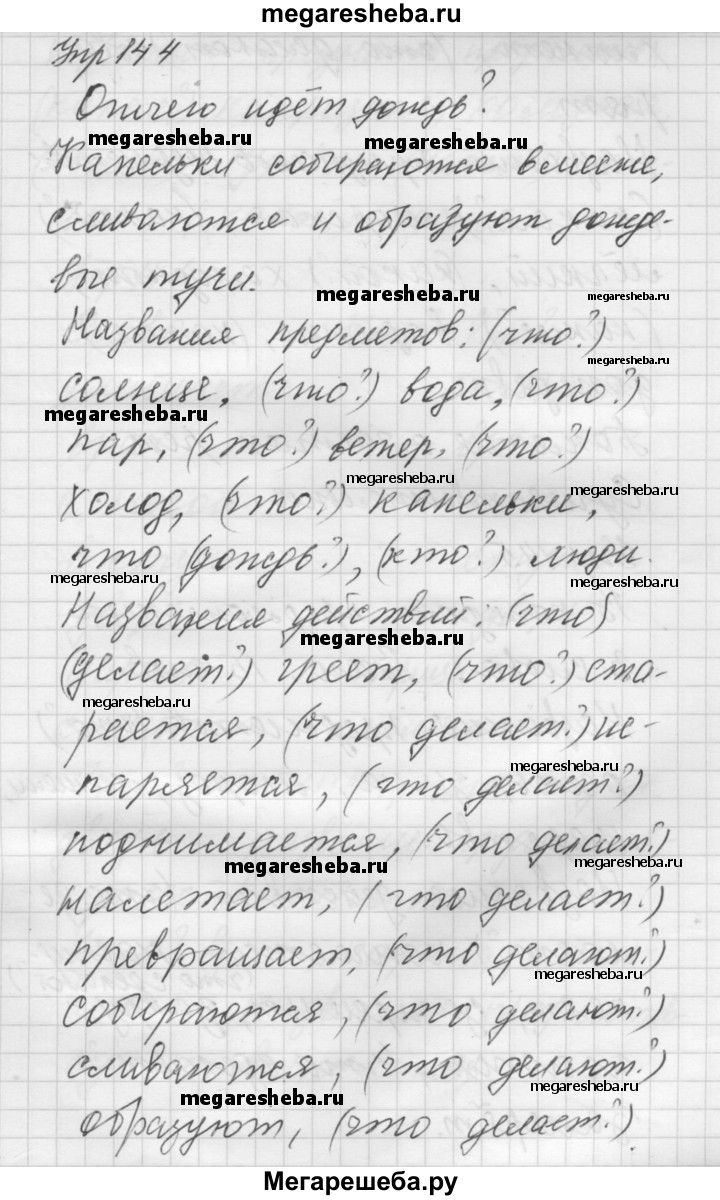 megaresheba.ru
Упр 144
Отчего идёт дождь?
megaresheba.ru megaresheba.ru
Капельки собираются вместе,
сливаются и образуют дожде-
вые тучи.
megaresheba.ru megaresheba.ru
Названия предметов: (что?)
megaresheba.ru
солнце, (что?) вода, (что?)
megaresheba.ru
пар, (что?) ветер, (что?)
megaresheba.ru megaresheba.ru
холод, (что?) капельки,
что (дождь?), (кто?) люди.
megaresheba.ru megaresheba.ru
Названия действий: (что)
megaresheba.ru
(делает?) греет, (что?) ста-
megaresheba.ru
рается, (что делает?) ис-
megaresheba.ru
паряется, (что делает?)
поднимается, (что делает?)
megaresheba.ru megaresheba.ru
налетает, (что делает?)
превращает, (что делают?)
megaresheba.ru
собираются, (что делают?)
сливаются, (что делают?)
megaresheba.ru megaresheba.ru
образуют, (что делает?)
Мегарешеба.ру